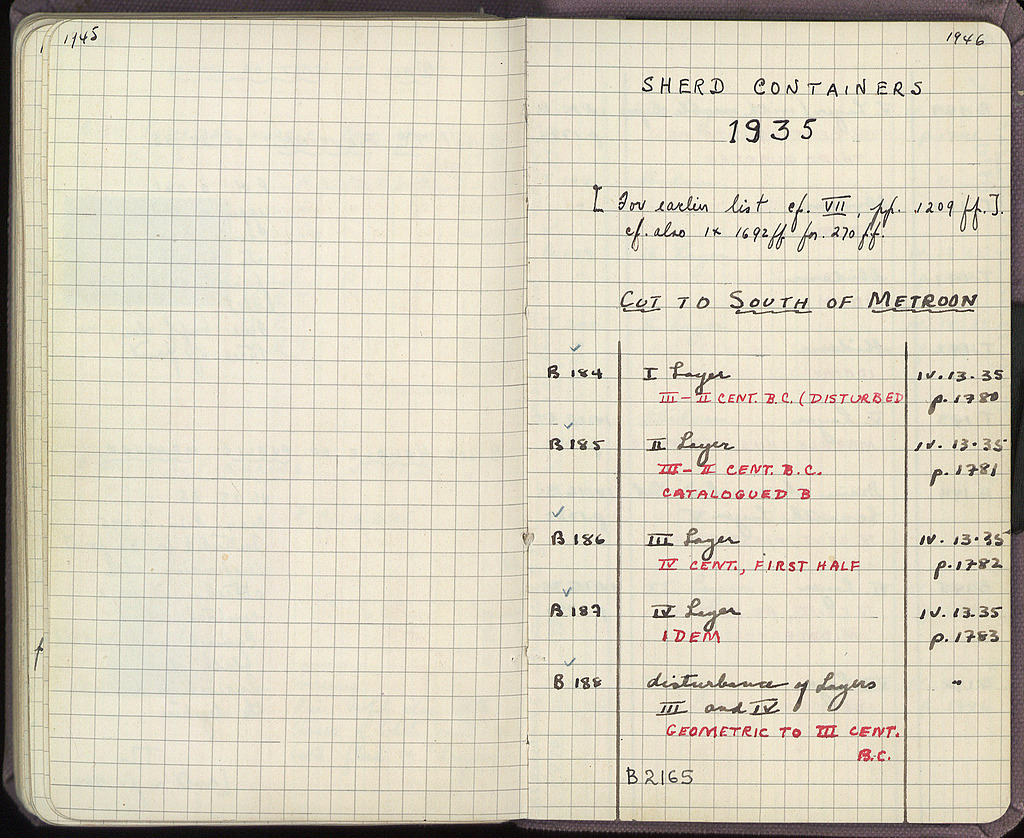 1945
1946
SHERD CONTAINERS
1935
[For earlier list cf. VII, pp. 1209 ff.].
cf. also IX 1692ff for 270 ff.
CUT TO SOUTH OF METROON
B 184 I Layer IV.13.35
III-II CENT. B.C. (DISTURBED p.1780
B 185 II Layer IV.13.35
III-II CENT. B.C. p.1781
CATALOGUED B
B 186 III Layer IV.13.35
IV CENT., FIRST HALF p.1782
B 187 IV Layer IV.13.35
IDEM p.1783
B 188 disturbance of Layers "
III and IV
GEOMETRIC TO III CENT.
B.C.
B2165